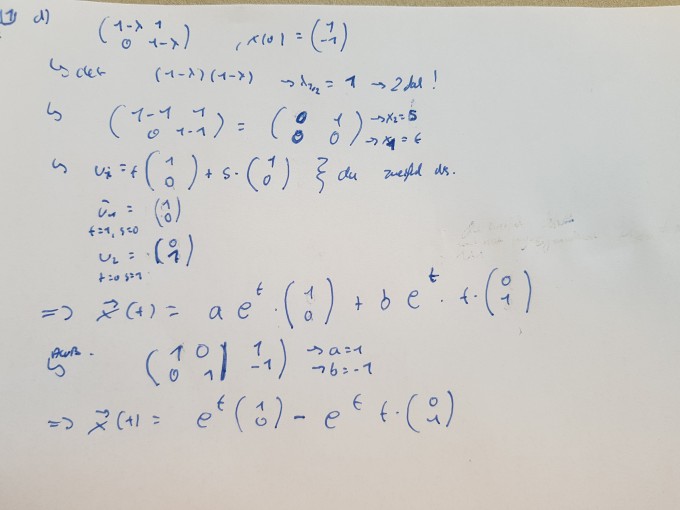 11 d) (1-λ 1 0 1-λ) , x(0) = (1 -1)
↳ det (1-λ)(1-λ) → λ1/2 = 1 → 2 Mal !
↳ (1-1 1 0 1-1) = (0 1 0 0) → x2=s → x1=t
↳ = t(1 0) + s·(1 0) } da
u1 = (1 0)
t=1, s=0
u2 = (0 1)
t=0 s=1
=> x⃗(t) = a e^t · (1 0) + b e^t · t·(0 1)
↳ (1 0 | 1 0 1 | -1) → a=1 → b=-1
=> x⃗(t) = e^t (1 0) - e^t t·(0 1)